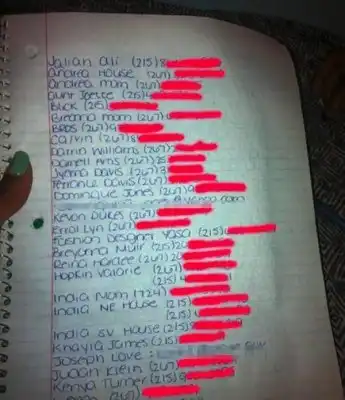 Jalian Ali (215) 8
Andrea House (267)
Andrea mom (267)
Aunt Jeette (215) 4
Blick (215)
Breanna mom (267)
BROS (267) 9
Calvin (267) 8
Darrin Williams (267) 2
Darnell Arns (267) 25
Dyema Davis (267) 3
Terrance Davis (267)
Dominique Jones (267) 9
Kevon Dukes (267)
Errol Lyn (267)
Fashion Designer Yasa (215) 6
Breyonna Muir (215) 20
Reina Hardee (267) 20
Hopkin Valarie (267)
(215) 4
India Mom (724)
India NE House (215)
(215)
India SW House (215) 8
Khayla James (215)
Joseph Love :
Juaan Klein (267)
Kenya Turner (215) 9
(267)